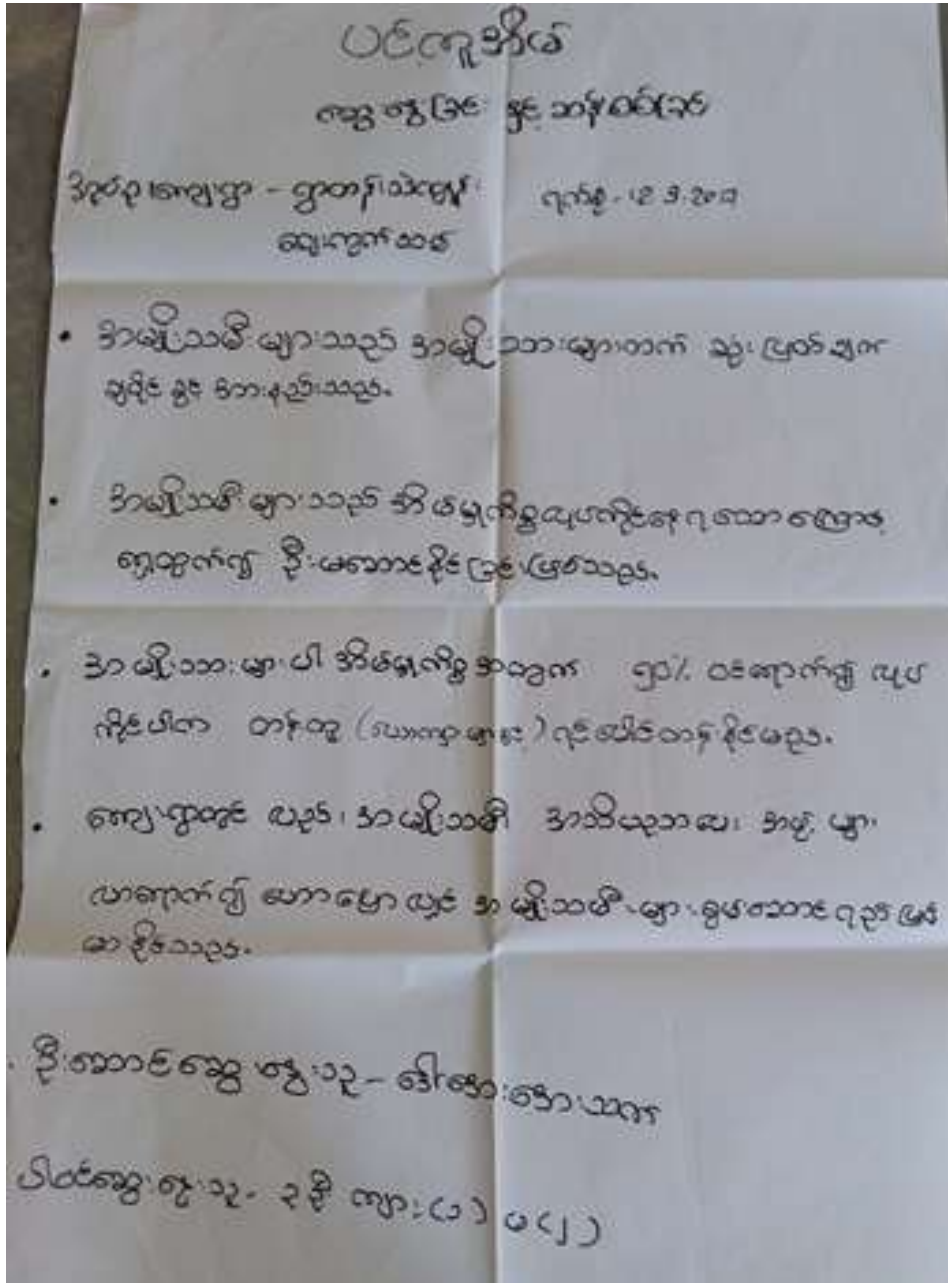 ပင့်ကူအိမ်
ဆွေးနွေးခြင်း နှင့် ဆန်းစစ်ခြင်း
အုပ်စု၊ကျေးရွာ - ရွာတန်း၊သဲကျွန်း ရက်စွဲ - 12.3.20
ဈေးကွက်သစ်
• အမျိုးသမီးများသည် အမျိုးသားများထက် ဆုံးဖြတ်ချက်
ချပိုင်ခွင့် အားနည်းသည်။
• အမျိုးသမီးများသည် အိမ်မှုကိစ္စလုပ်ကိုင်နေရသောကြောင့်
ရှေ့ထွက်၍ ဦးမဆောင်နိုင်ခြင်းဖြစ်သည်။
• အမျိုးသားများပါ အိမ်မှုကိစ္စအတွက် ၅၀% ဝင်ရောက်၍ လုပ်
ကိုင်ပါက တန်းတူ (ယောကျာ်းများနှင့်) ရင်ပေါင်တန်းနိုင်မည်။
• ကျေးရွာတွင် လည်း၊ အမျိုးသမီး အသိပညာပေး အဖွဲ့များ
လာရောက်၍ ဟောပြောလျှင် အမျိုးသမီးများ စွမ်းဆောင်ရည်မြင့်
မာနိုင်သည်။
• ဦးဆောင်ဆွေးနွေးသူ - ဒေါ်အေးအေးသက်
ပါဝင်ဆွေးနွေးသူ - ၃ဦး ကျား(၁) မ(၂)